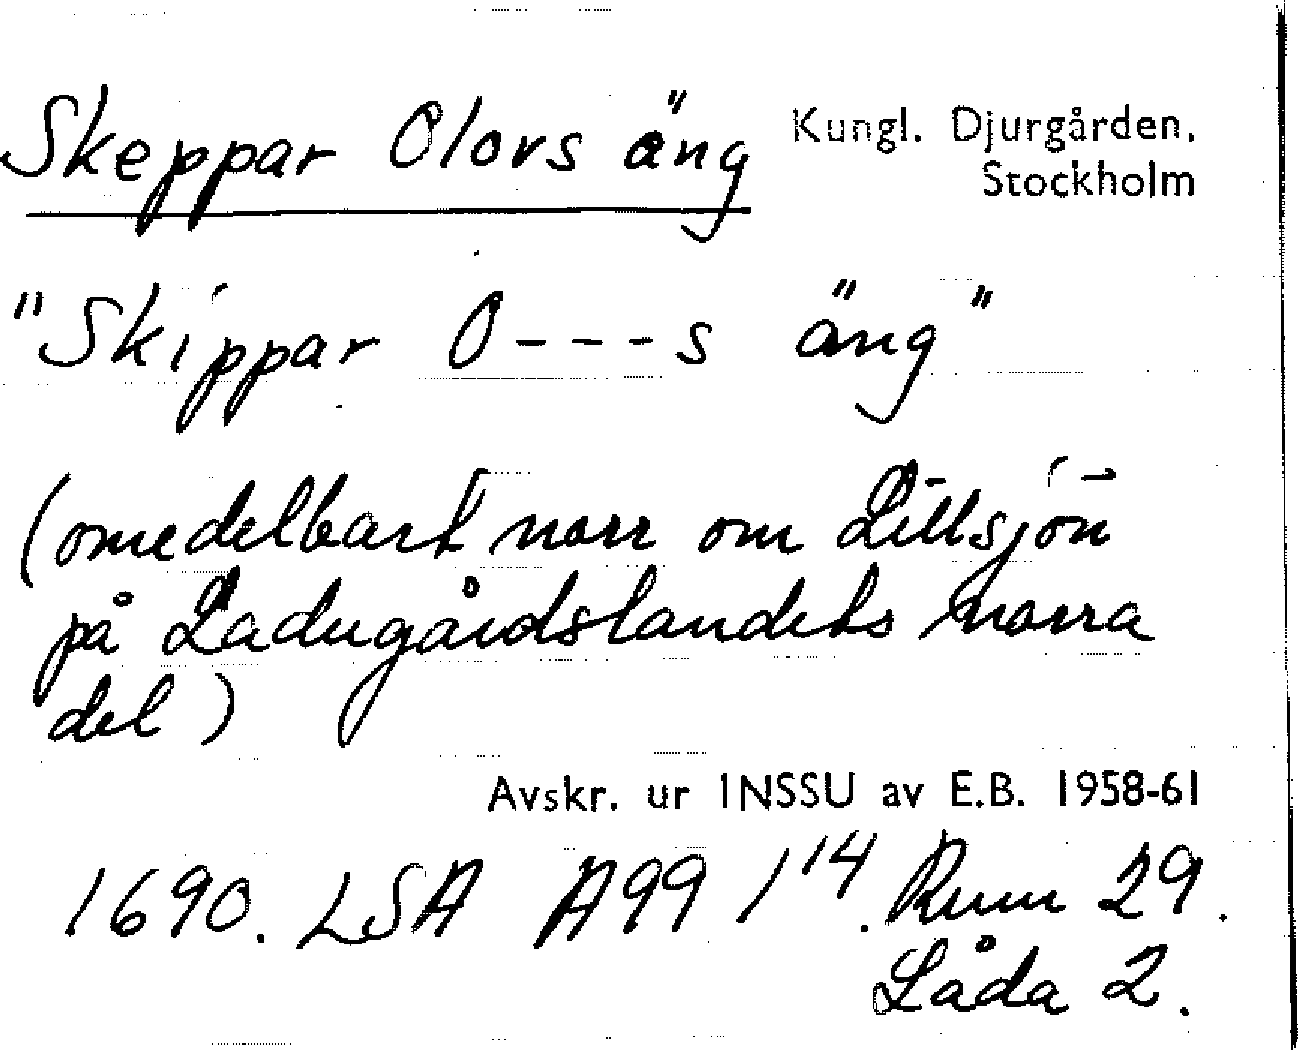 Skeppar Olovs äng
Kungl. Djurgården.
Stockholm
"Skippar O---s äng"
(omedelbart norr om Lillsjön
på Ladugårdslandets norra
del)
Avskr. ur INSSU av E.B. 1958-61
1690. LSA A99 1¹⁴. Rum 29.
Låda 2.